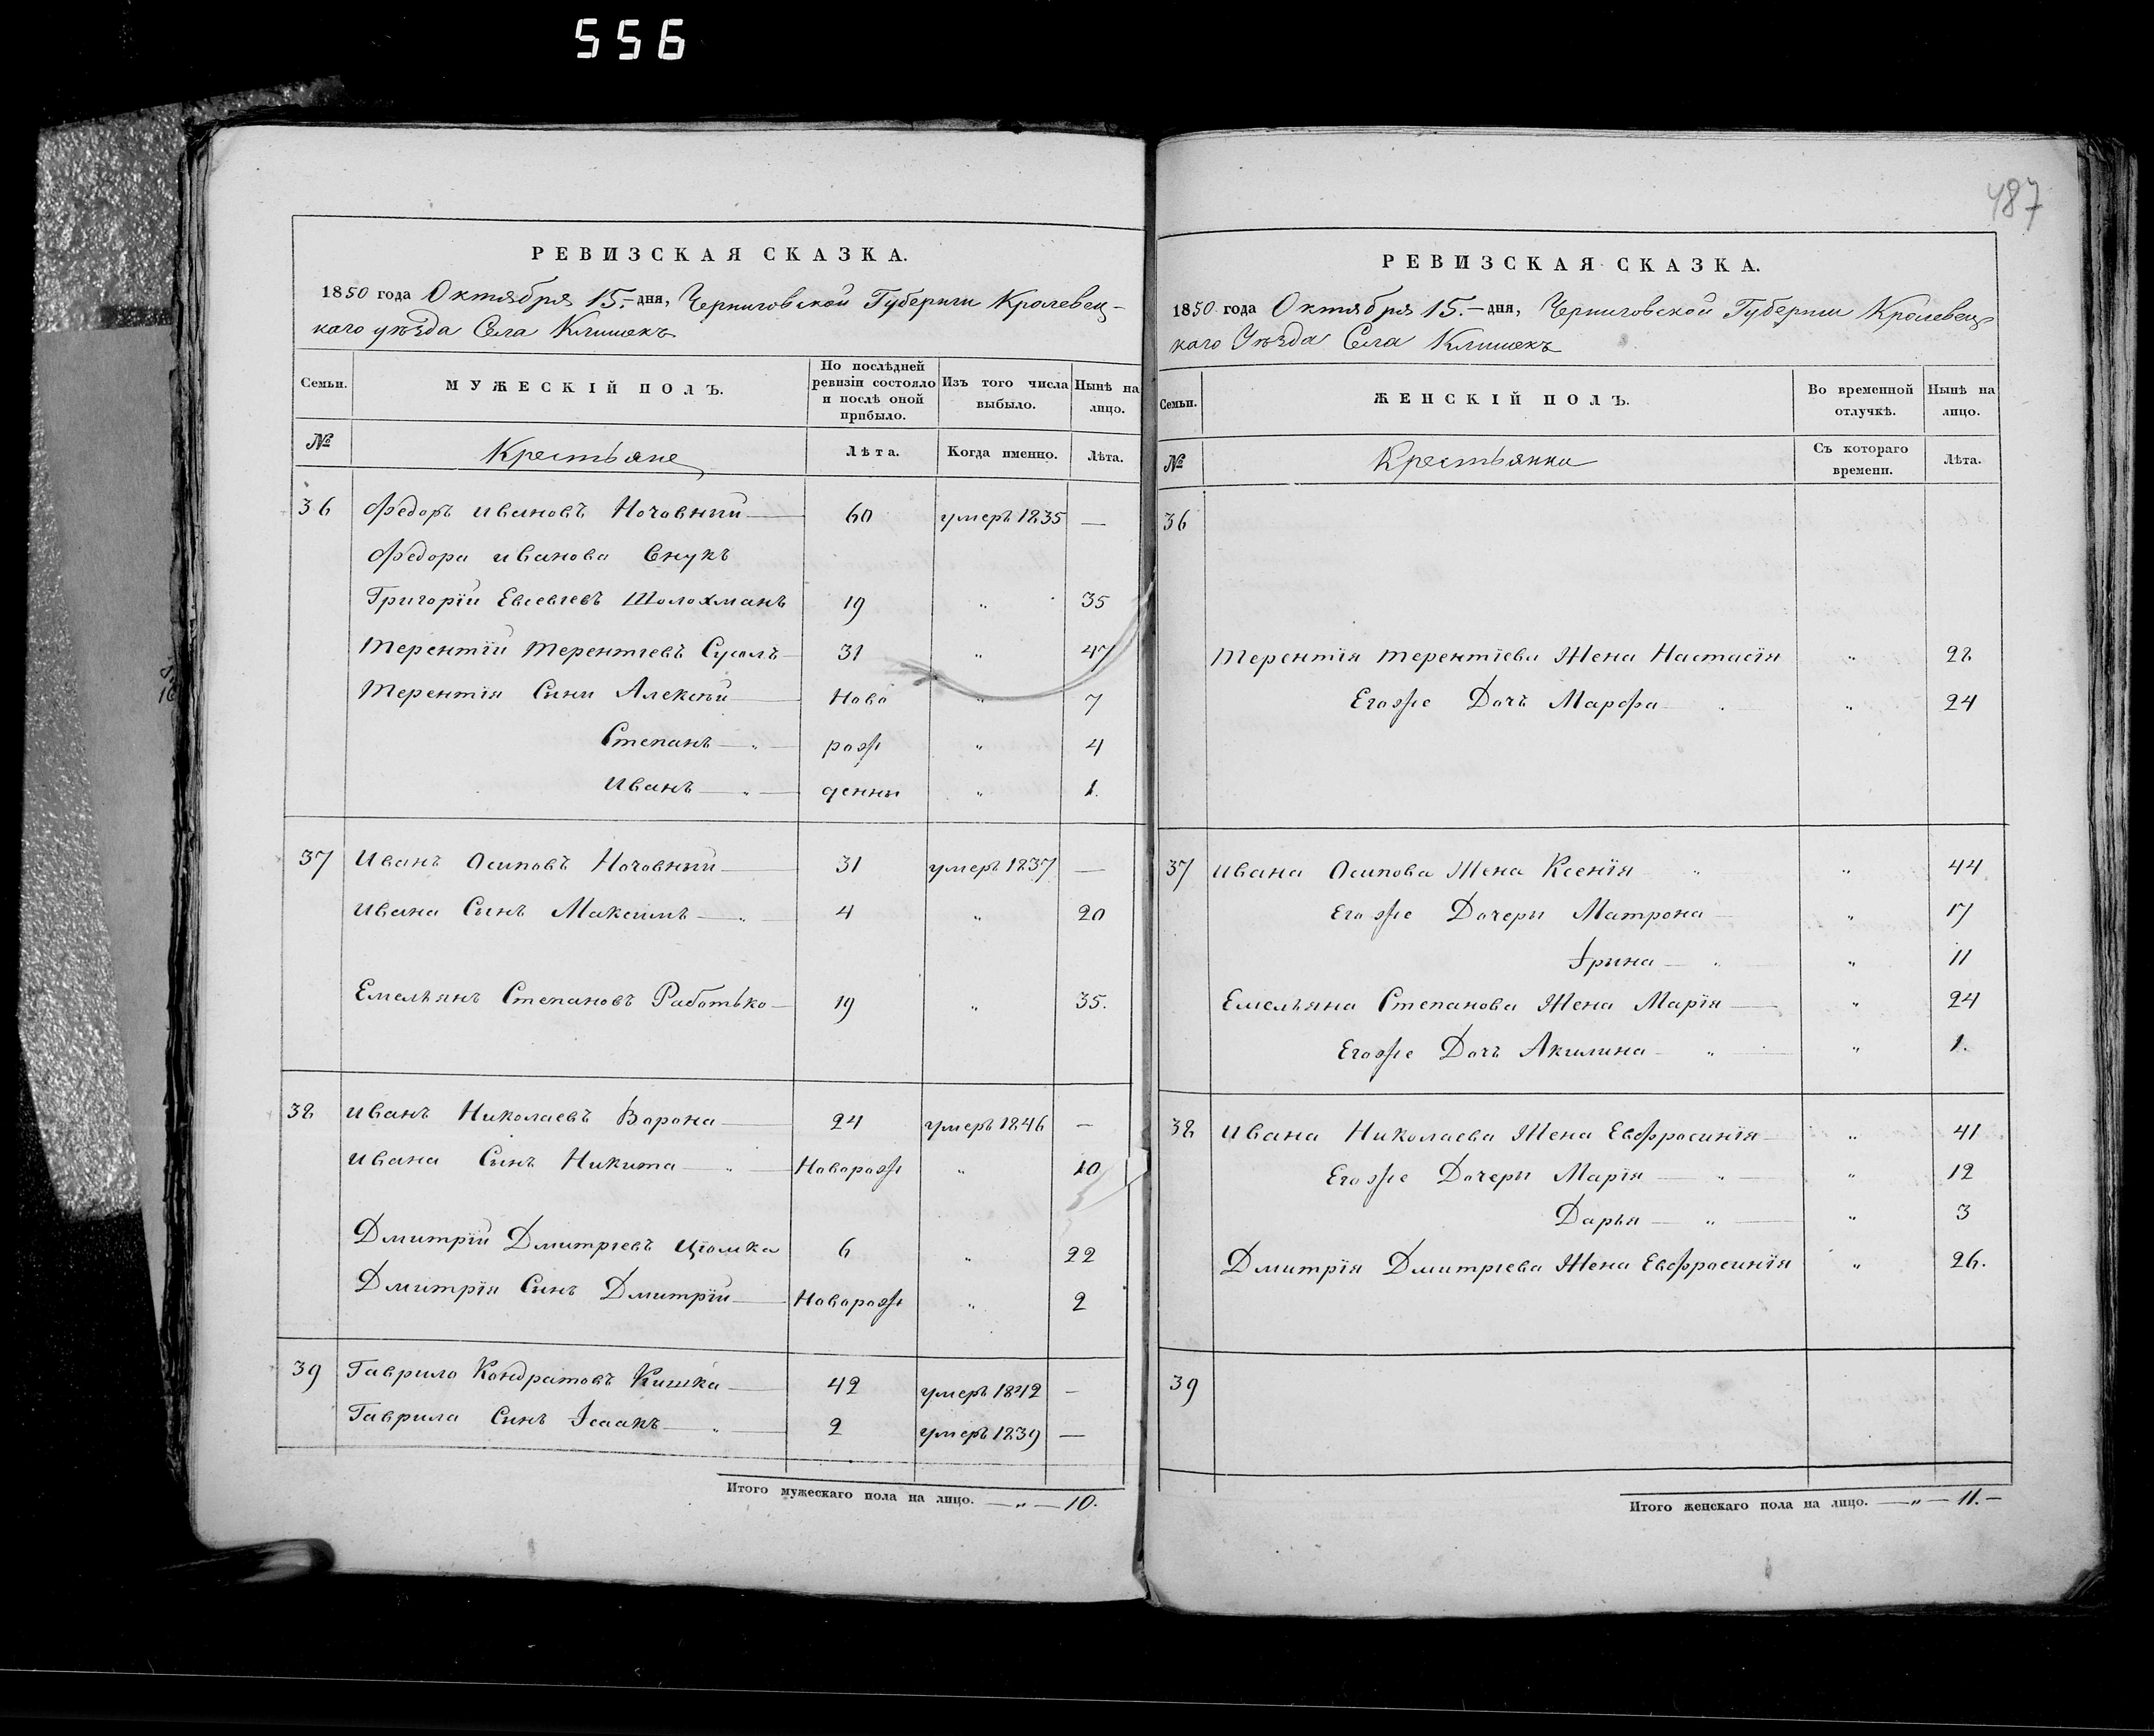 556
487
РЕВИЗСКАЯ СКАЗКА.
1850 года Октября 15.– дня, Черниговской Губернии Кролевец-
каго уѣзда Села Клишекъ
Семьи.
МУЖЕСКІЙ ПОЛЪ.
По послѣдней ревизіи состояло и послѣ оной прибыло.
Изъ того числа выбыло.
Нынѣ на лицо.
№ Крестьяне Лѣта. Когда именно. Лѣта.
36 Федоръ Ивановъ Ночовный — 60 умеръ 1835 —
Федора Иванова Внукъ
Григорій Евсевіевъ Шолохманъ 19 „ 35
Терентій Терентіевъ Сусолъ 31 „ 47
Терентія Сыни Алексѣй — Ново „ 7
Степанъ — „ — рож „ 4
Иванъ — „ — денни „ 1.
37 Иванъ Осиповъ Ночовный — 31 умеръ 1837 —
Ивана Сынъ Максимъ — „ 4 „ 20
Емельянъ Степановъ Работько — 19 „ 35.
38 Иванъ Николаевъ Ворона — 24 умеръ 1846 —
Ивана Сынъ Никита — „ — Новорож „ 10
Дмитрій Дмитріевъ Цюмка 6 „ 22
Дмитрія Сынъ Дмитрій — Новорож „ 2
39 Гаврило Кондратовъ Кишка — 42 умеръ 1842 —
Гаврила Сынъ Ісаакъ — „ — 2 умеръ 1839 —
Итого мужескаго пола на лицо. — „ — 10.
РЕВИЗСКАЯ СКАЗКА.
1850 года Октября 15.– дня, Черниговской Губернии Кролевец-
каго Уѣзда Села Клишекъ
Семьи.
ЖЕНСКІЙ ПОЛЪ.
Во временной отлучкѣ.
Нынѣ на лицо.
№ Крестьянки Съ котораго времени. Лѣта.
36
Терентія Терентіева Жена Настасія „ 28
Егоже Дочъ Марфа „ 24
37 Ивана Осипова Жена Ксенія „ „ 44
Егоже Дочери Матрона — „ 17
Ірина — „ „ 11
Емельяна Степанова Жена Марія — „ 24
Егоже Дочъ Акилина — „ — „ 1.
38 Ивана Николаева Жена Евфросинія — „ 41
Егоже Дочери Марія — „ — „ 12
Дарья — „ — „ 3
Дмитрія Дмитріева Жена Евфросинія „ 26.
39
Итого женскаго пола на лицо. — „ — 11. —